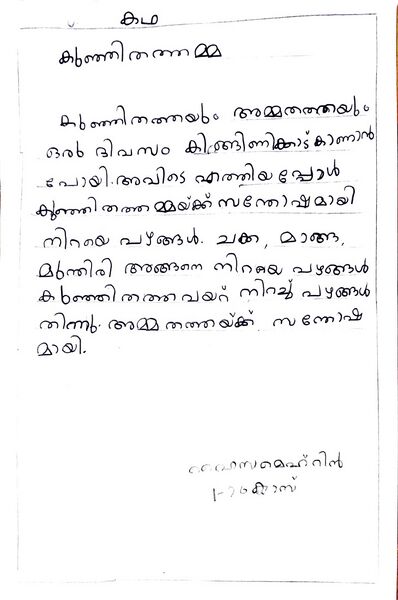 കഥ
കുഞ്ഞിതത്തമ്മ
കുഞ്ഞിതത്തയും അമ്മതത്തയും
ഒരു ദിവസം കിങ്ങിണിക്കാട് കാണാൻ
പോയി. അവിടെ എത്തിയപ്പോൾ
കുഞ്ഞിതത്തമ്മയ്ക്ക് സന്തോഷമായി
നിറയെ പഴങ്ങൾ. ചക്ക, മാങ്ങ,
മുന്തിരി അങ്ങനെ നിറയെ പഴങ്ങൾ
കുഞ്ഞിതത്ത വയറ് നിറച്ച് പഴങ്ങൾ
തിന്നു. അമ്മതത്തയ്ക്ക് സന്തോഷ
മായി.
മെഹ്റിൻ
1-ാം ക്ലാസ്